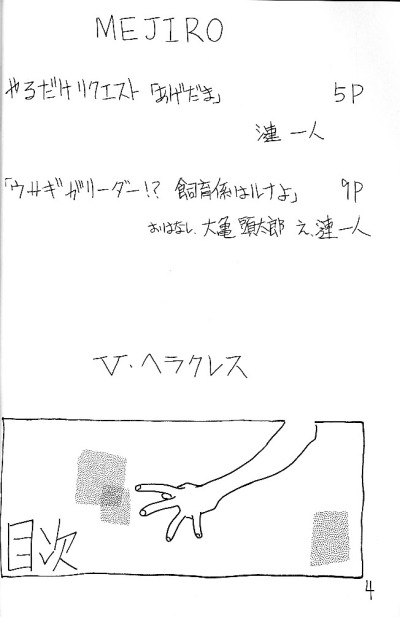 MEJIRO
やるだけリクエスト「あげだま」 5P
漣 一人
「ウサギがリーダー!? 飼育係はルナよ」 9P
おはなし、大亀 頭太郎 え、漣 一人
V・ヘラクレス
目次
4